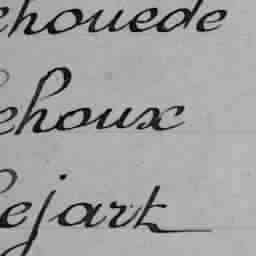 ehouede
ehoux
ejart